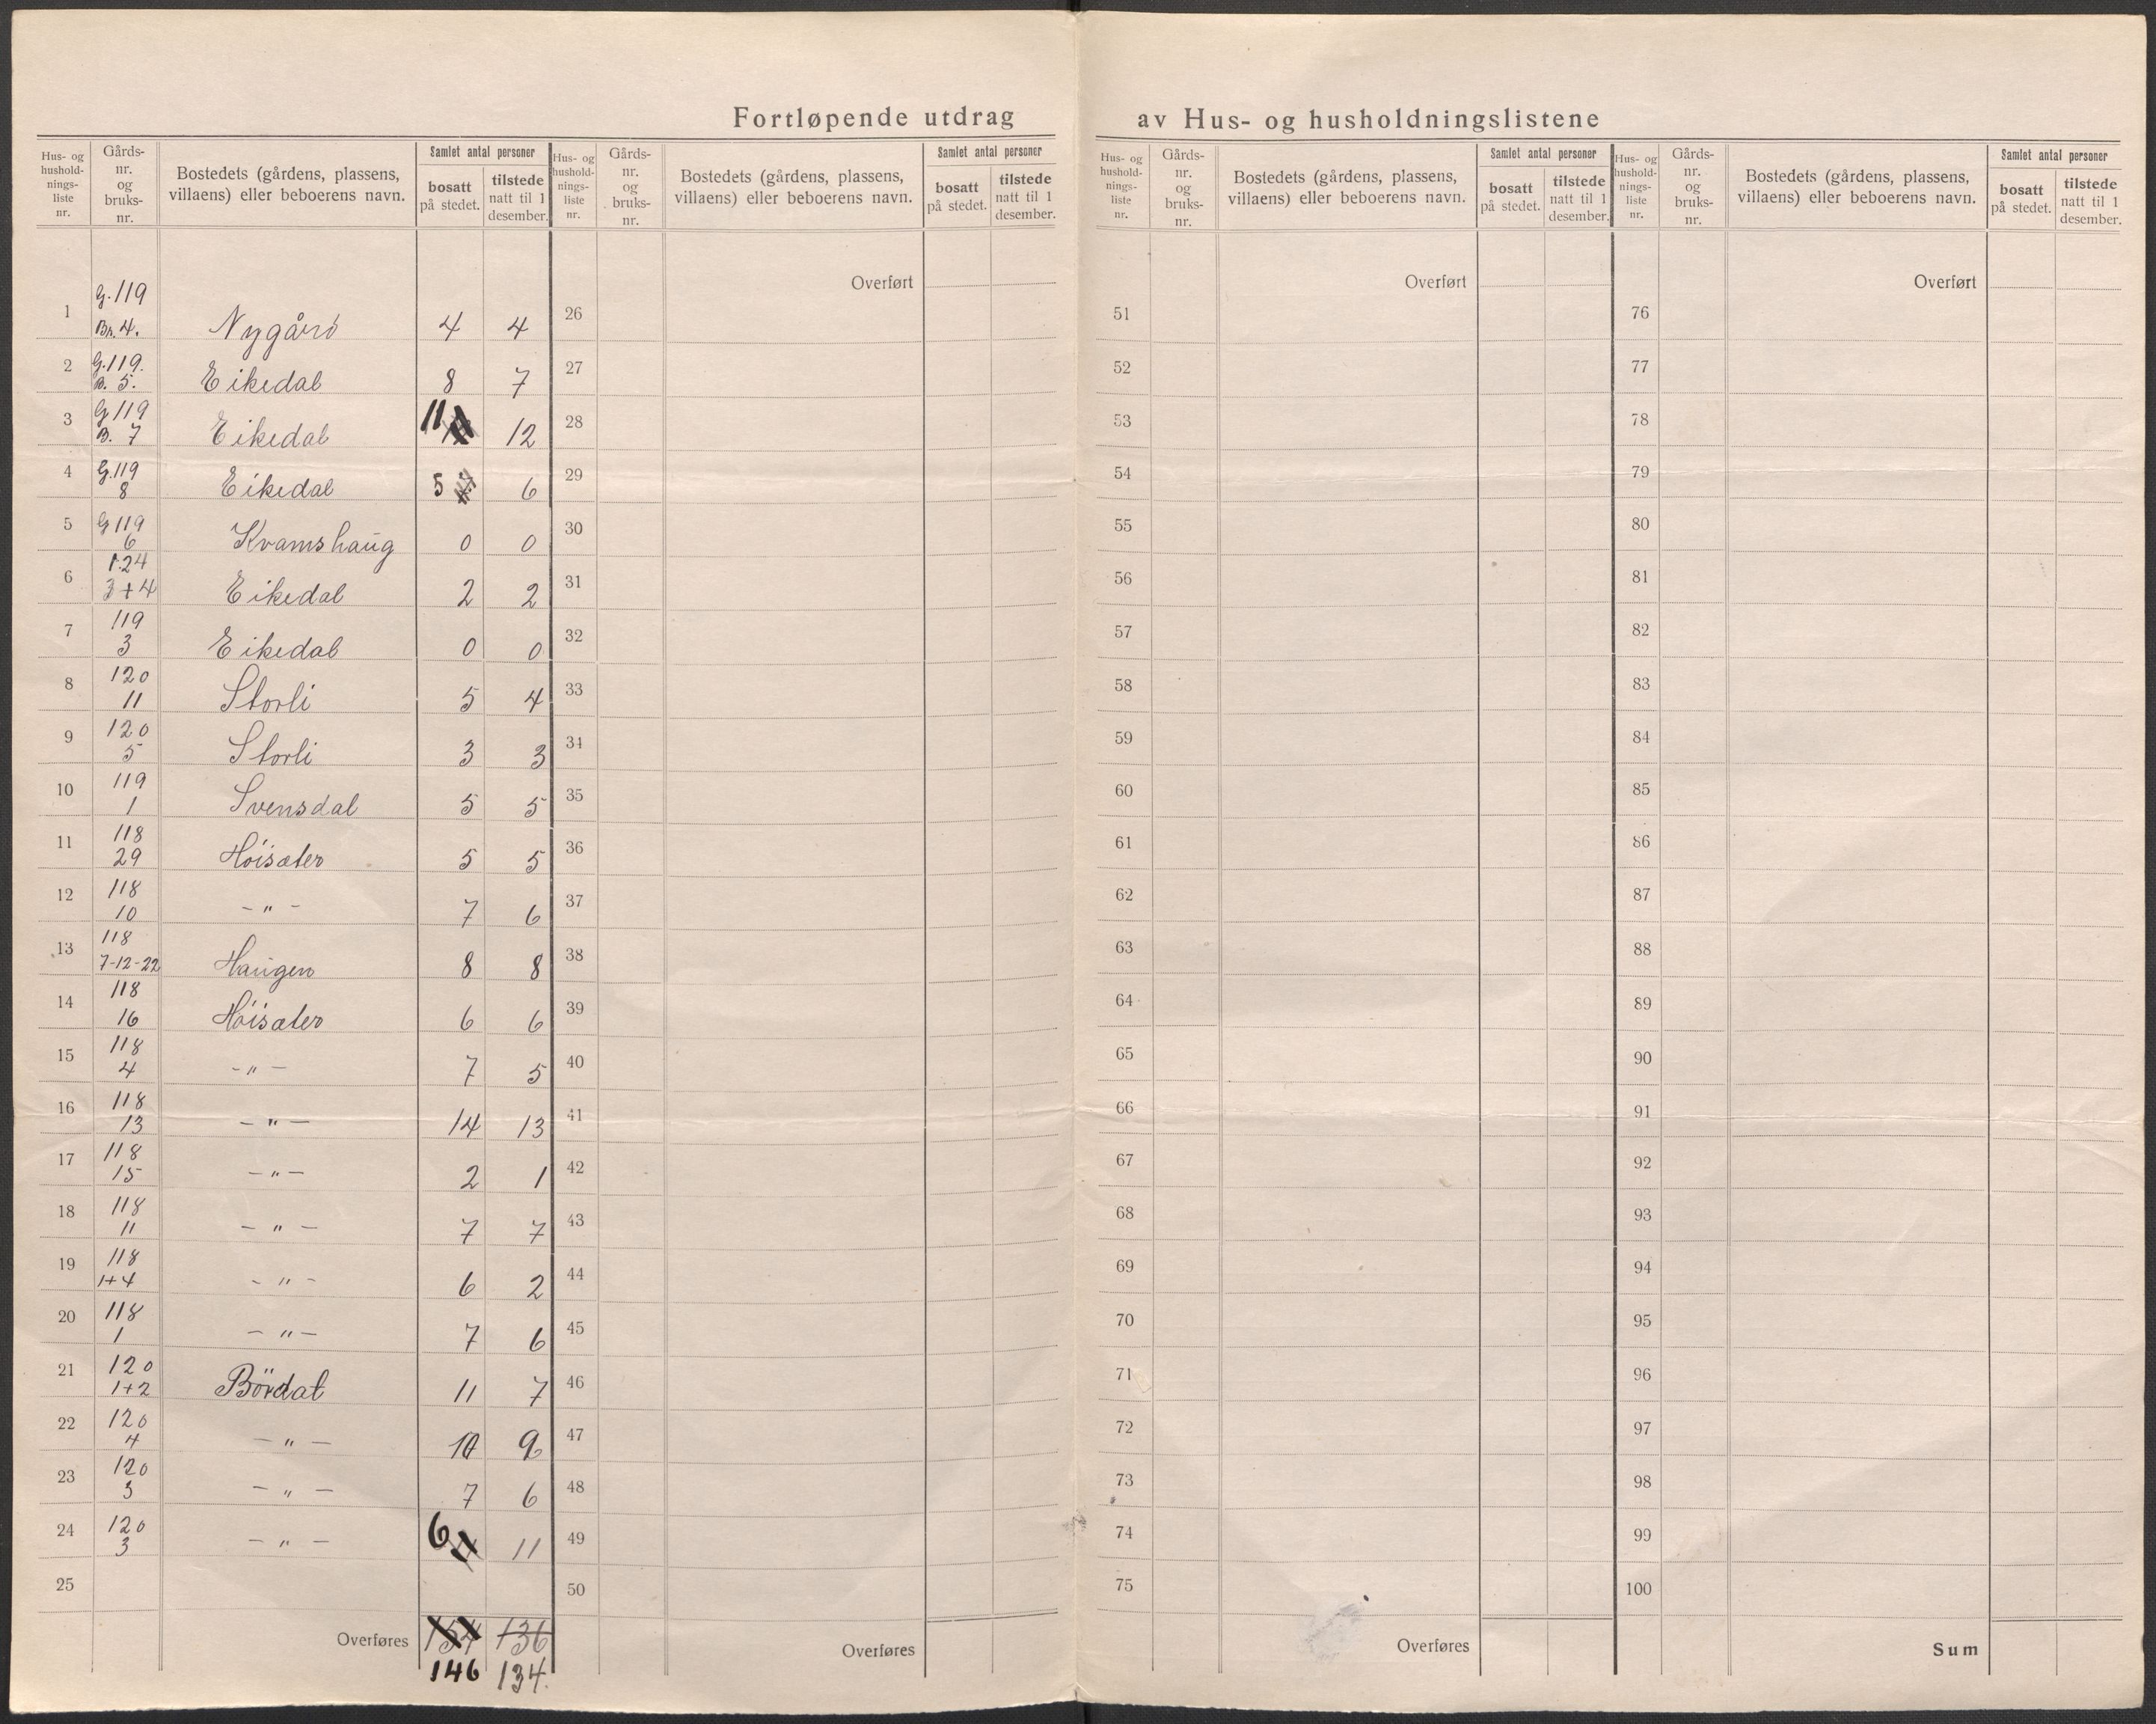 Fortløpende utdrag av Hus- og husholdningslistene
Hus- og hushold-nings-liste nr. Gårds-nr. og bruks-nr. Bostedets (gårdens, plassens, villaens) eller beboerens navn. Samlet antal personer bosatt på stedet. tilstede natt til 1 desember.
1 G.119 Br. 4. Nygård 4 4
2 G.119. B. 5. Eikedal 8 7
3 G 119 B. 7 Eikedal 11 12
4 G.119 8 Eikedal 5 6
5 G 119 6 Kvamshaug 0 0
6 124 3+4 Eikedal 2 2
7 119 3 Eikedal 0 0
8 120 11 Storli 5 4
9 120 5 Storli 3 3
10 119 1 Svensdal 5 5
11 118 29 Høisæter 5 5
12 118 10 -"- 7 6
13 118 7-12-22 Haugen 8 8
14 118 16 Høisæter 6 6
15 118 4 -"- 7 5
16 118 13 -"- 14 13
17 118 15 -"- 2 1
18 118 11 -"- 7 7
19 118 1+4 -"- 6 2
20 118 1 -"- 7 6
21 120 1+2 Bördal 11 7
22 120 4 -"- 10 9
23 120 3 -"- 7 6
24 120 3 -"- 6 11
25
Overføres 154 136
146 134.
Hus- og hushold-nings-liste nr. Gårds-nr. og bruks-nr. Bostedets (gårdens, plassens, villaens) eller beboerens navn. Samlet antal personer bosatt på stedet. tilstede natt til 1 desember.
Overført
26
27
28
29
30
31
32
33
34
35
36
37
38
39
40
41
42
43
44
45
46
47
48
49
50
Overføres
Hus- og hushold-nings-liste nr. Gårds-nr. og bruks-nr. Bostedets (gårdens, plassens, villaens) eller beboerens navn. Samlet antal personer bosatt på stedet. tilstede natt til 1 desember.
Overført
51
52
53
54
55
56
57
58
59
60
61
62
63
64
65
66
67
68
69
70
71
72
73
74
75
Overføres
Hus- og hushold-nings-liste nr. Gårds-nr. og bruks-nr. Bostedets (gårdens, plassens, villaens) eller beboerens navn. Samlet antal personer bosatt på stedet. tilstede natt til 1 desember.
Overført
76
77
78
79
80
81
82
83
84
85
86
87
88
89
90
91
92
93
94
95
96
97
98
99
100
Sum